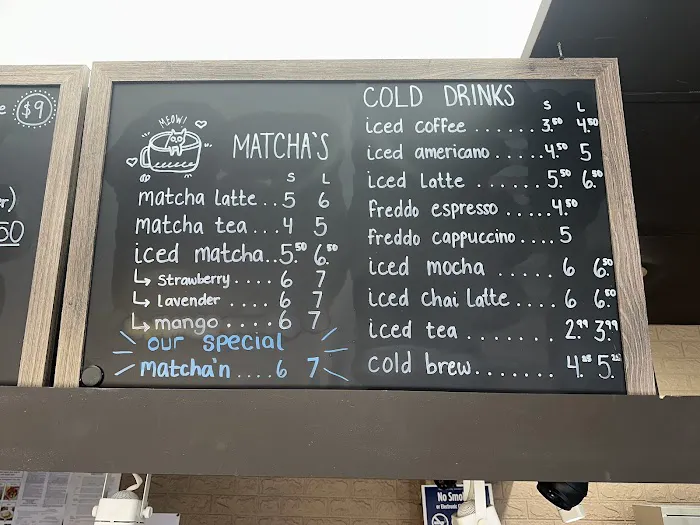 e $9
r)
50
MEOW!
MATCHA'S
S L
matcha latte..5 6
matcha tea...4 5
iced matcha..5.50 6.50
↳ strawberry....6 7
↳ lavender....6 7
↳ mango....6 7
our special
matcha'n....6 7
COLD DRINKS
S L
iced coffee.......3.50 4.50
iced americano.....4.50 5
iced Latte.......5.50 6.50
freddo espresso.....4.50
freddo cappuccino....5
iced mocha......6 6.50
iced chai Latte....6 6.50
iced tea........2.99 3.99
cold brew.......4.25 5.25
No Smo
or Electronic